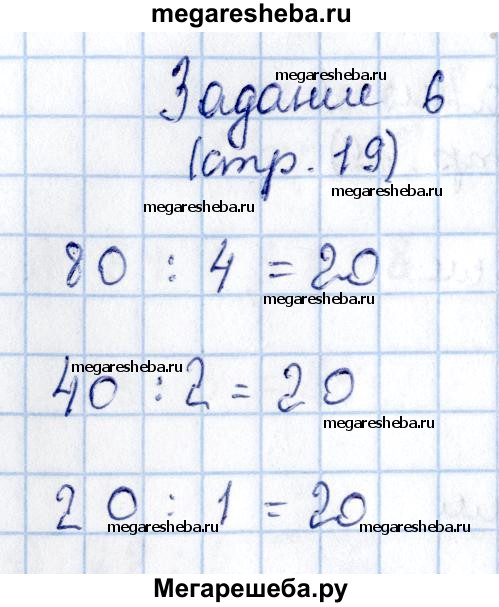 megaresheba.ru
Задание 6
megaresheba.ru
(стр. 19)
megaresheba.ru
megaresheba.ru
80 : 4 = 20
megaresheba.ru
megaresheba.ru
40 : 2 = 20
megaresheba.ru
20 : 1 = 20
megaresheba.ru
megaresheba.ru
Мегарешеба.ру